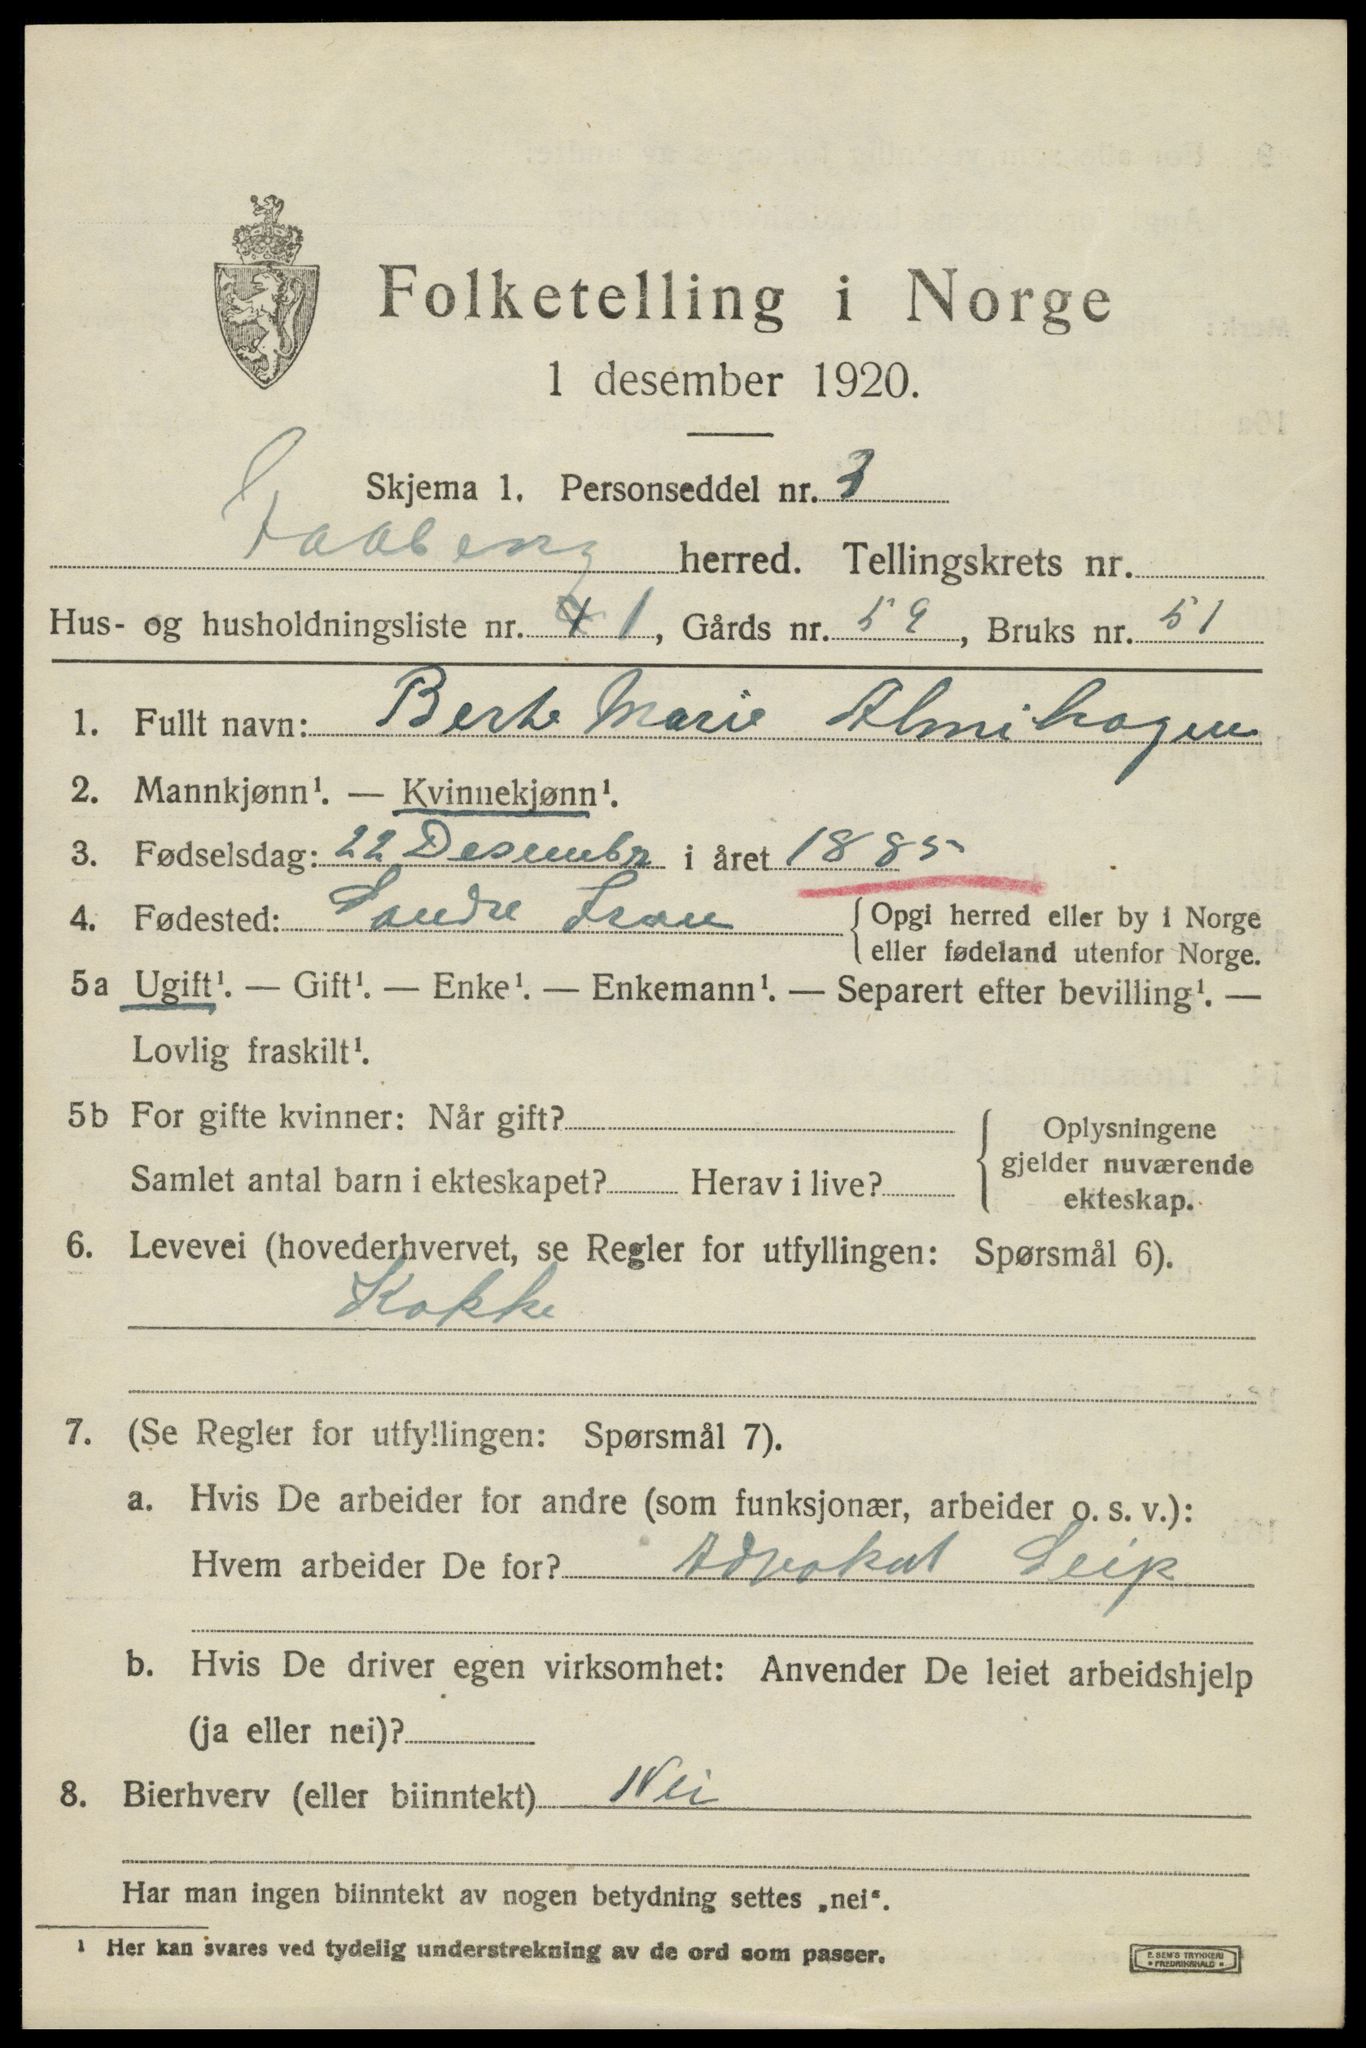 Folketelling i Norge
1 desember 1920.
Skjema 1. Personseddel nr. 3
Faaberg herred. Tellingskrets nr.
Hus- og husholdningsliste nr. 1, Gårds nr. 59, Bruks nr. 51
1. Fullt navn: Berte Marie
2. Mannkjønn¹. — Kvinnekjønn¹.
3. Fødselsdag: 22 Desembr i året 1885
4. Fødested: Søndre Fron { Opgi herred eller by i Norge
eller fødeland utenfor Norge.
5a Ugift¹. — Gift¹. — Enke¹. — Enkemann¹. — Separert efter bevilling¹. —
Lovlig fraskilt¹.
5b For gifte kvinner: Når gift?
Samlet antal barn i ekteskapet? Herav i live?
{ Oplysningene
gjelder nuværende
ekteskap.
6. Levevei (hovederhvervet, se Regler for utfyllingen: Spørsmål 6).
Kokke
7. (Se Regler for utfyllingen: Spørsmål 7).
a. Hvis De arbeider for andre (som funksjonær, arbeider o. s. v.):
Hvem arbeider De for? Advokat
b. Hvis De driver egen virksomhet: Anvender De leiet arbeidshjelp
(ja eller nei)?
8. Bierhverv (eller biinntekt) Nei
Har man ingen biinntekt av nogen betydning settes „nei“.
¹ Her kan svares ved tydelig understrekning av de ord som passer.
E. SEM'S TRYKKERI
* FREDRIKSHALD *